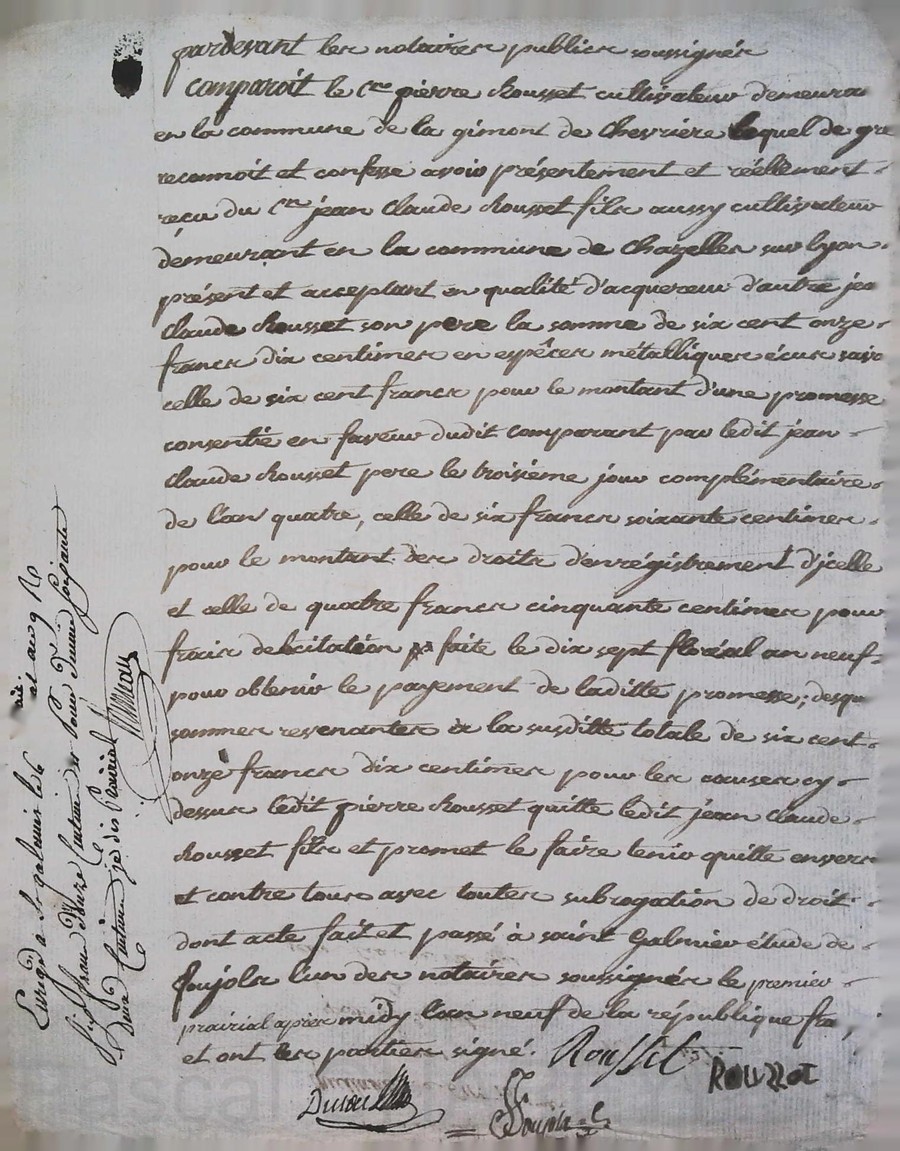 pardevant les notaires publics soussignés
Comparoit le Cen pierre Rousset cultivateur demeura
en la commune de la gimont de Chevriere lequel de gre
reconnoit et confesse avoir présentement et réellement
reçu du Cen jean Claude Rousset fils aussy cultivateur
demeurant en la commune de Chazelles sur lyon
présent et acceptant en qualité d'acquereur d'autre jea
Claude Rousset son pere la somme de six cent onze
francs dix centimes en espêces métalliques écus savo
celle de six cent francs pour le montant d'une promesse
consentie en faveur dudit comparant par ledit jean
Claude Rousset pere le troisième jour complémentaire
de l'an quatre, celle de six francs soixante centimes
pour le montant des droits d'enrégistrement d'jcelle
et celle de quatre francs cinquante centimes pour
frais de citation faite le dix sept floréal an neuf
pour obtenir le payement de laditte promesse; desqu
sommes revenantes à la susditte totale de six cent
onze francs dix centimes pour les causes cy
dessus ledit pierre Rousset quitte ledit jean Claude
Rousset fils et promet le faire tenir quitte envers
et contre tous avec toutes subrogation de droit
dont acte fait et passé à saint Galmier étude de
Pujols l'un des notaires soussignés le premier
prairial après midy l'an neuf de la république fra
et ont les parties signé. Rousset
ROUSSET
Enrégé a St galmier le
six francs